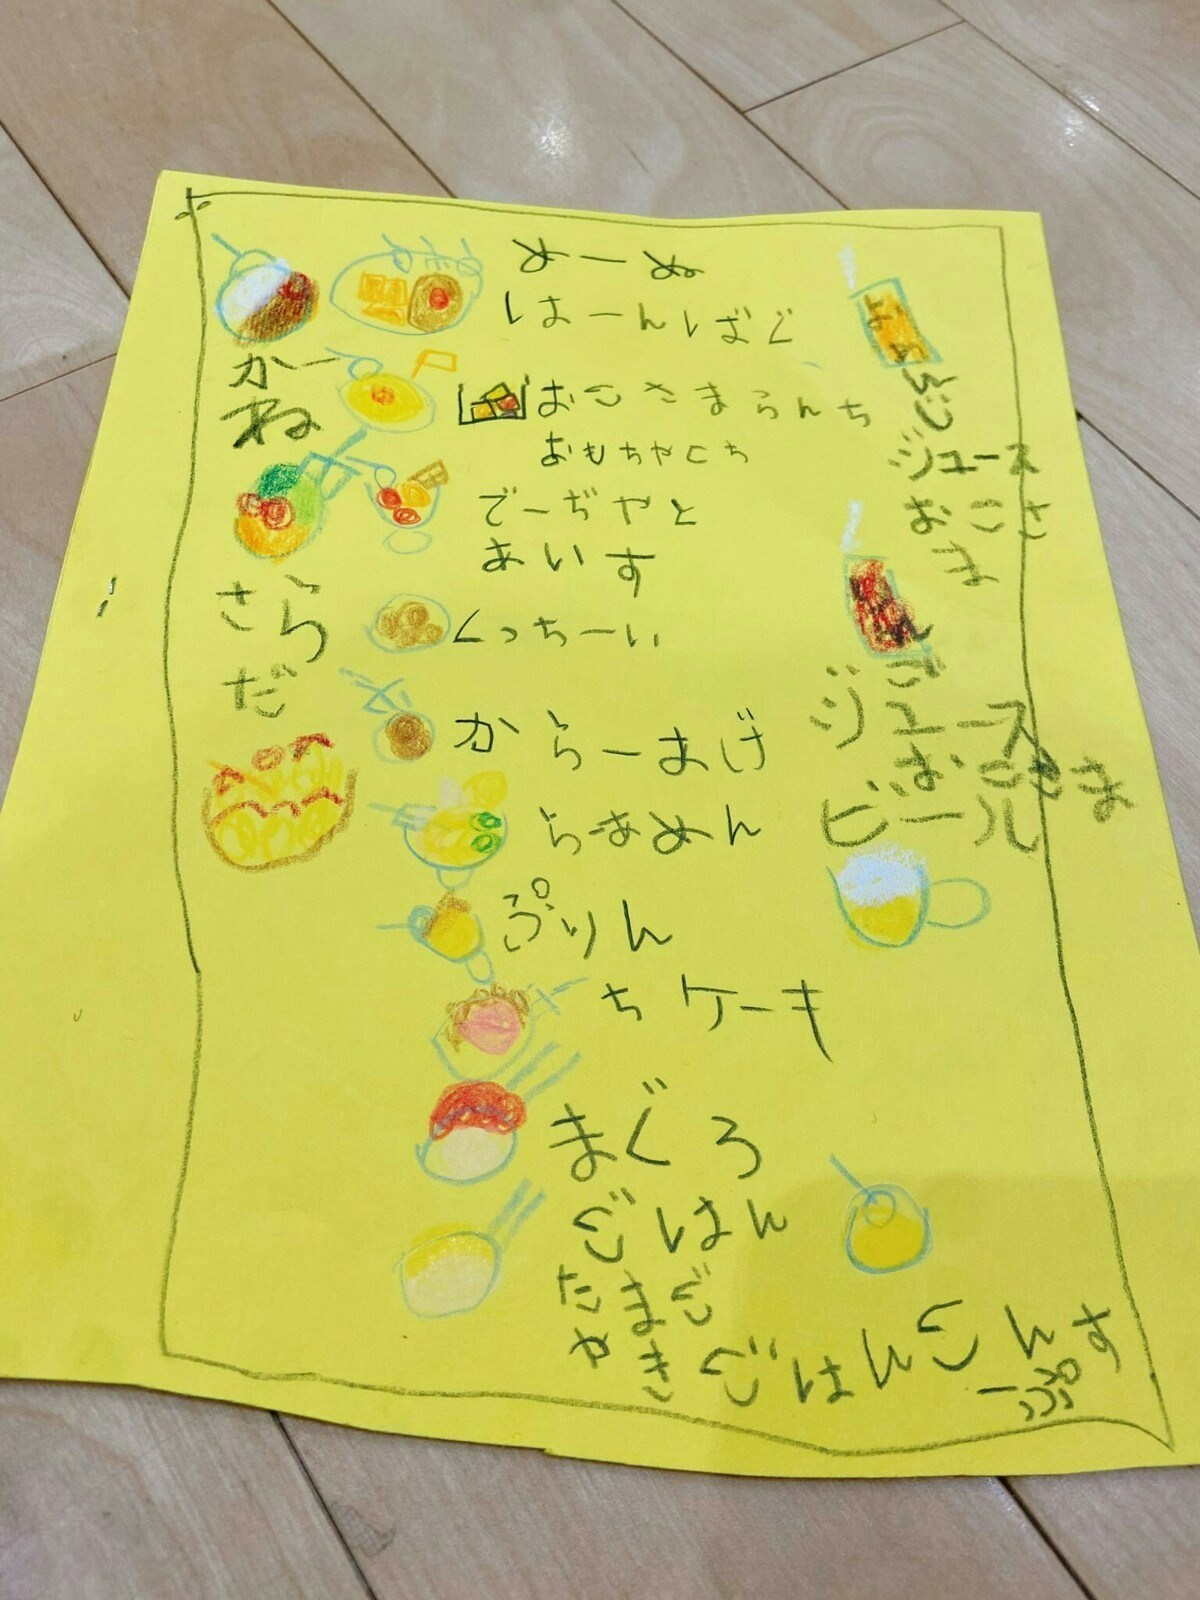 めーぬ
はーんばぐ
おこさまらんち
おもちゃとち
でーぢゃと
あいす
くっちーい
からーあげ
らーあめん
ぷりん
ちケーキ
まぐろ
ごはん
たまご
やきごはん
こんすーぷ
かー
ね
さら
だ
ジュース
おこさ
ま
んご
ジュース
おこさま
ビール